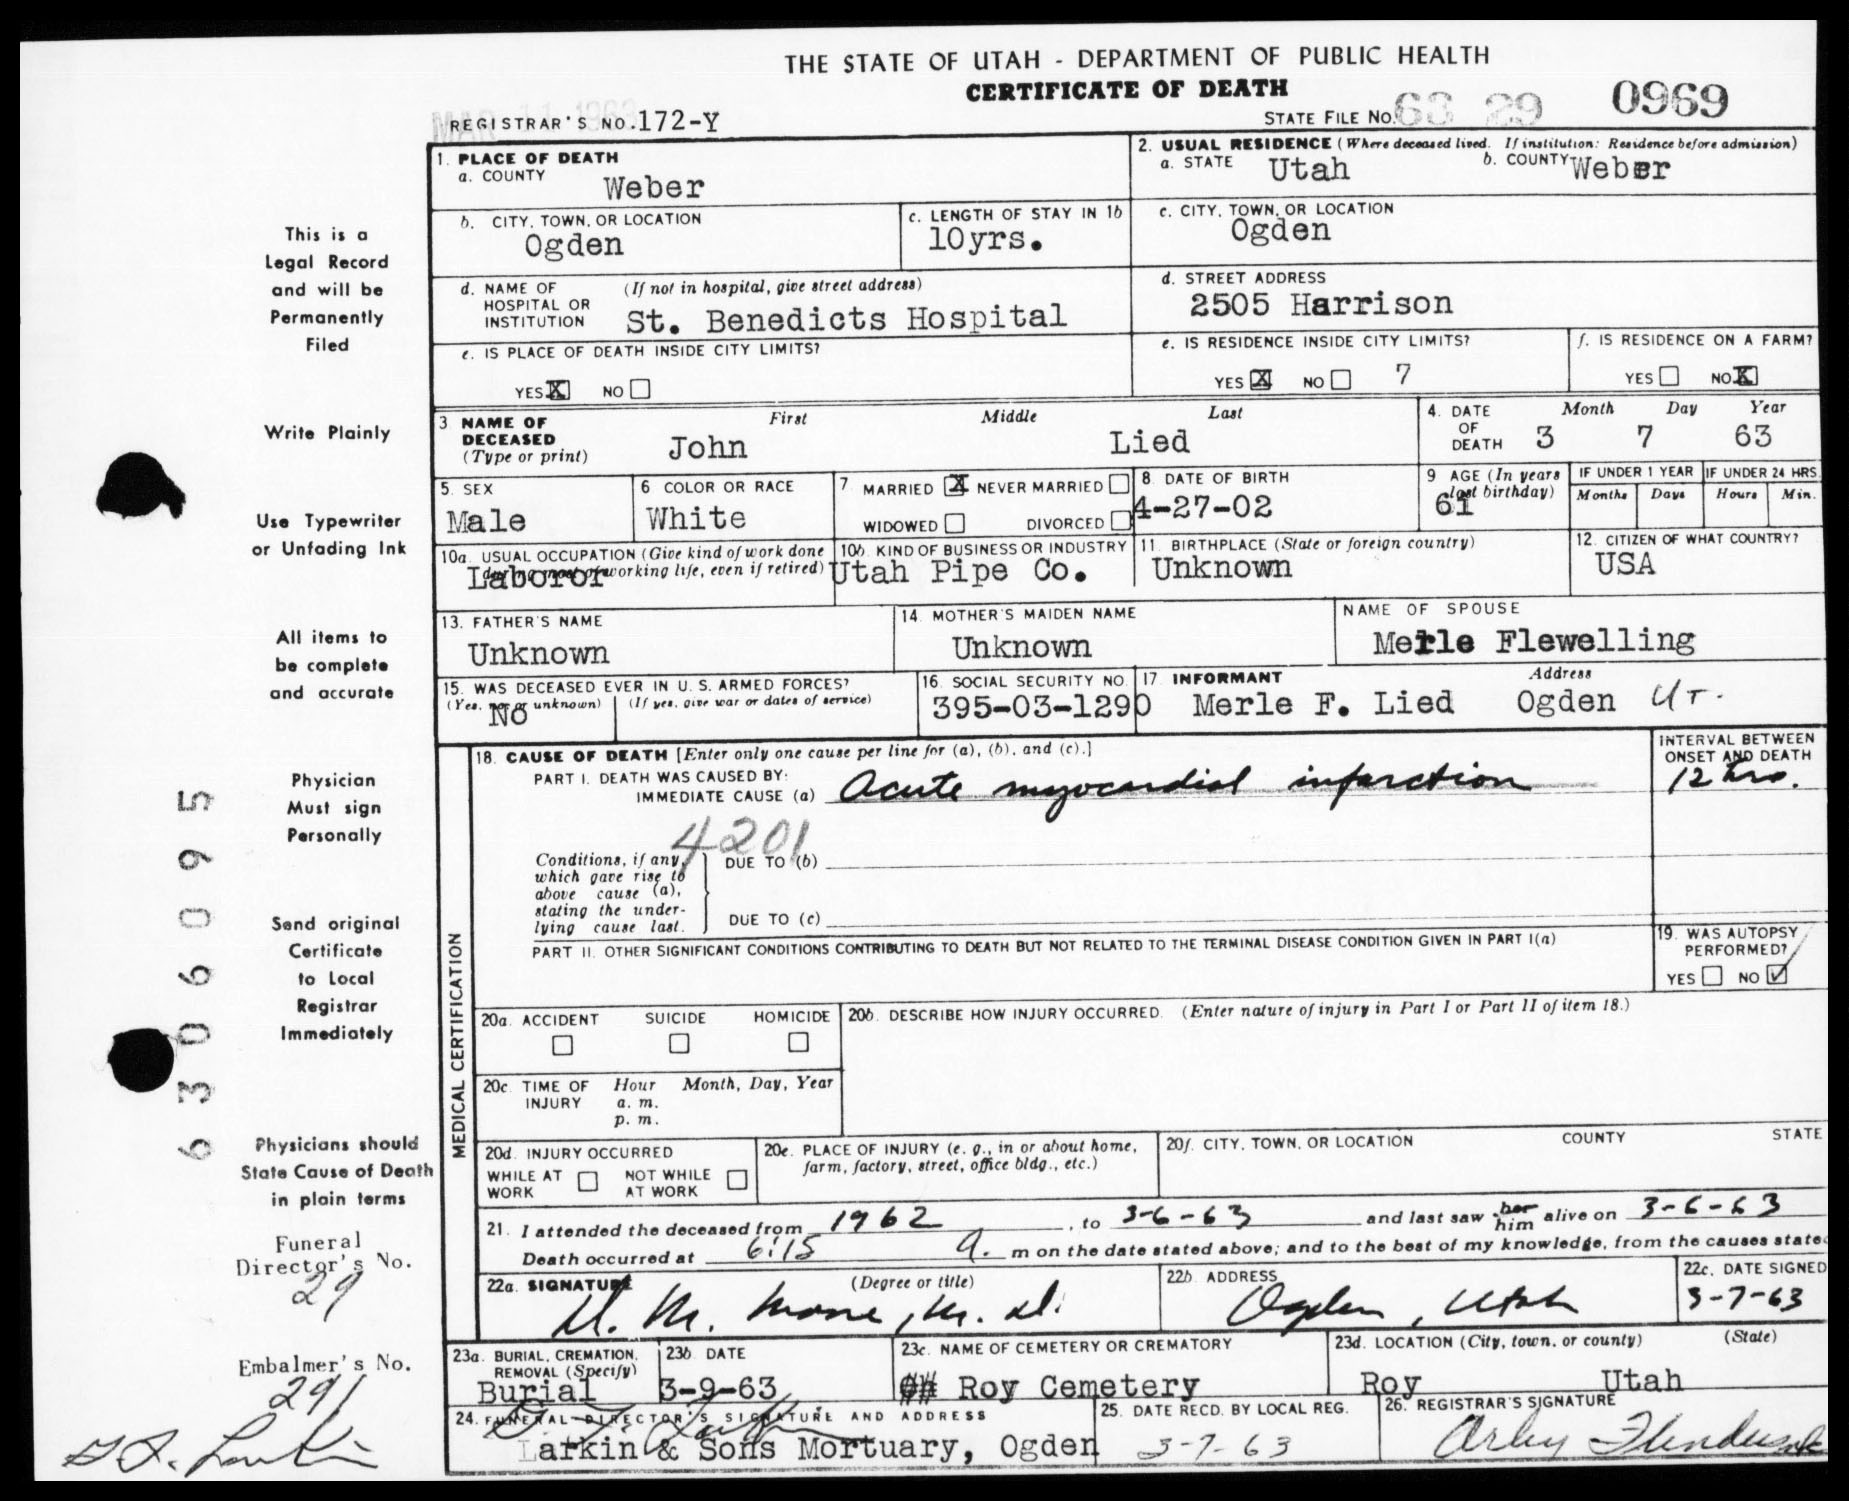 THE STATE OF UTAH - DEPARTMENT OF PUBLIC HEALTH
CERTIFICATE OF DEATH
MAR 11 1963
REGISTRAR'S NO. 172-Y
STATE FILE NO. 63 29 0969
This is a
Legal Record
and will be
Permanently
Filed
Write Plainly
Use Typewriter
or Unfading Ink
All items to
be complete
and accurate
Physician
Must sign
Personally
Send original
Certificate
to Local
Registrar
Immediately
Physicians should
State Cause of Death
in plain terms
Funeral
Director's No.
29
Embalmer's No.
291
6306095
1. PLACE OF DEATH
a. COUNTY
Weber
2. USUAL RESIDENCE (Where deceased lived. If institution: Residence before admission)
a. STATE Utah b. COUNTY Weber
b. CITY, TOWN, OR LOCATION
Ogden
c. LENGTH OF STAY IN 1b
10yrs.
c. CITY, TOWN, OR LOCATION
Ogden
d. NAME OF HOSPITAL OR INSTITUTION (If not in hospital, give street address)
St. Benedicts Hospital
d. STREET ADDRESS
2505 Harrison
e. IS PLACE OF DEATH INSIDE CITY LIMITS?
YES X NO
e. IS RESIDENCE INSIDE CITY LIMITS?
YES X NO 7
f. IS RESIDENCE ON A FARM?
YES NO X
3 NAME OF DECEASED (Type or print)
First Middle Last
John Lied
4. DATE OF DEATH
Month Day Year
3 7 63
5. SEX
Male
6 COLOR OR RACE
White
7. MARRIED X NEVER MARRIED
WIDOWED DIVORCED
8 DATE OF BIRTH
4-27-02
9 AGE (In years last birthday)
61
IF UNDER 1 YEAR
Months Days
IF UNDER 24 HRS.
Hours Min.
10a. USUAL OCCUPATION (Give kind of work done during most of working life, even if retired)
Laboror
10b. KIND OF BUSINESS OR INDUSTRY
Utah Pipe Co.
11. BIRTHPLACE (State or foreign country)
Unknown
12. CITIZEN OF WHAT COUNTRY?
USA
13. FATHER'S NAME
Unknown
14. MOTHER'S MAIDEN NAME
Unknown
NAME OF SPOUSE
Merle Flewelling
15. WAS DECEASED EVER IN U. S. ARMED FORCES?
(Yes, no, or unknown) (If yes, give war or dates of service)
No
16. SOCIAL SECURITY NO.
395-03-1290
17. INFORMANT Address
Merle F. Lied Ogden UT.
MEDICAL CERTIFICATION
18. CAUSE OF DEATH [Enter only one cause per line for (a), (b), and (c).]
PART I. DEATH WAS CAUSED BY:
IMMEDIATE CAUSE (a) Acute myocardial infarction
INTERVAL BETWEEN ONSET AND DEATH
12 hrs.
4201
Conditions, if any, which gave rise to above cause (a), stating the underlying cause last.
DUE TO (b)
DUE TO (c)
PART II. OTHER SIGNIFICANT CONDITIONS CONTRIBUTING TO DEATH BUT NOT RELATED TO THE TERMINAL DISEASE CONDITION GIVEN IN PART I(a)
19. WAS AUTOPSY PERFORMED?
YES NO ✓
20a. ACCIDENT SUICIDE HOMICIDE
20b. DESCRIBE HOW INJURY OCCURRED. (Enter nature of injury in Part I or Part II of item 18.)
20c. TIME OF INJURY
Hour Month, Day, Year
a. m.
p. m.
20d. INJURY OCCURRED
WHILE AT WORK NOT WHILE AT WORK
20e. PLACE OF INJURY (e. g., in or about home, farm, factory, street, office bldg., etc.)
20f. CITY, TOWN, OR LOCATION COUNTY STATE
21. I attended the deceased from 1962, to 3-6-63 and last saw her him alive on 3-6-63
Death occurred at 6:15 a. m on the date stated above; and to the best of my knowledge, from the causes state
22a. SIGNATURE (Degree or title)
M. D.
22b. ADDRESS
Ogden, Utah
22c. DATE SIGNED
3-7-63
23a. BURIAL, CREMATION, REMOVAL (Specify)
Burial
23b. DATE
3-9-63
23c. NAME OF CEMETERY OR CREMATORY
Roy Cemetery
23d. LOCATION (City, town, or county) (State)
Roy Utah
24. FUNERAL DIRECTOR'S SIGNATURE AND ADDRESS
Larkin & Sons Mortuary, Ogden
25. DATE RECD. BY LOCAL REG.
3-7-63
26. REGISTRAR'S SIGNATURE